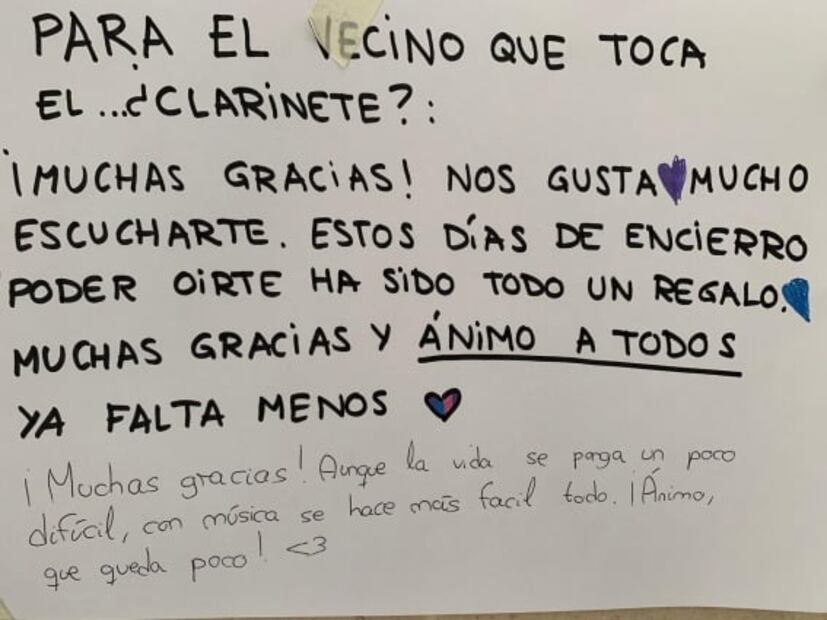 PARA EL VECINO QUE TOCA
EL ...¿CLARINETE?:
¡MUCHAS GRACIAS! NOS GUSTA MUCHO
ESCUCHARTE. ESTOS DÍAS DE ENCIERRO
PODER OIRTE HA SIDO TODO UN REGALO.
MUCHAS GRACIAS Y ÁNIMO A TODOS
YA FALTA MENOS
¡Muchas gracias! Aunque la vida se ponga un poco
difícil, con música se hace más facil todo. ¡Ánimo,
que queda poco! <3